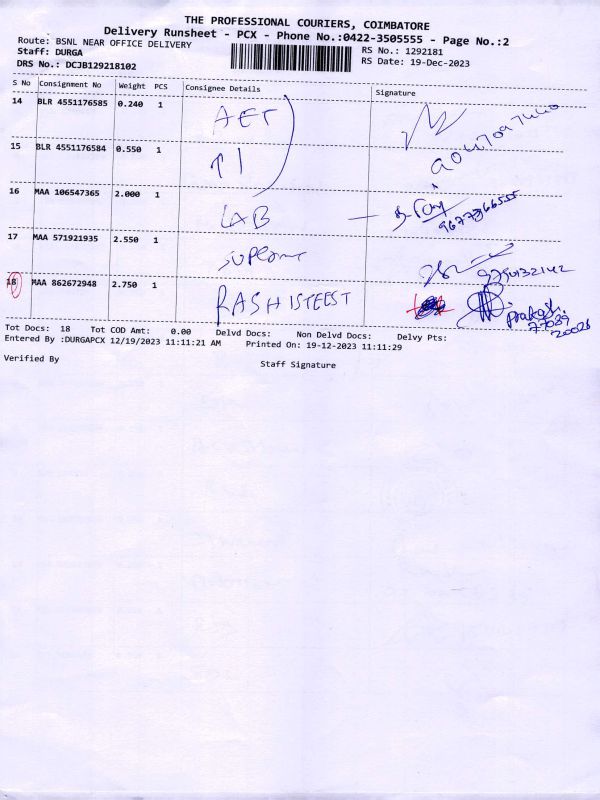 THE PROFESSIONAL COURIERS, COIMBATORE
Delivery Runsheet - PCX - Phone No.:0422-3505555 - Page No.:2
Route: BSNL NEAR OFFICE DELIVERY
RS No.: 1292181
Staff: DURGA
RS Date: 19-Dec-2023
DRS No.: DCJB129218102
S No Consignment No Weight PCS Consignee Details Signature
14 BLR 4551176585 0.240 1 AET
15 BLR 4551176584 0.550 1
16 MAA 106547365 2.000 1 LAB
9677366555
17 MAA 571921935 2.550 1
9790132142
18 MAA 862672948 2.750 1 RASHISTEEST
77089
20026
Tot Docs: 18 Tot COD Amt: 0.00 Delvd Docs: Non Delvd Docs: Delvy Pts:
Entered By :DURGAPCX 12/19/2023 11:11:21 AM Printed On: 19-12-2023 11:11:29
Verified By
Staff Signature